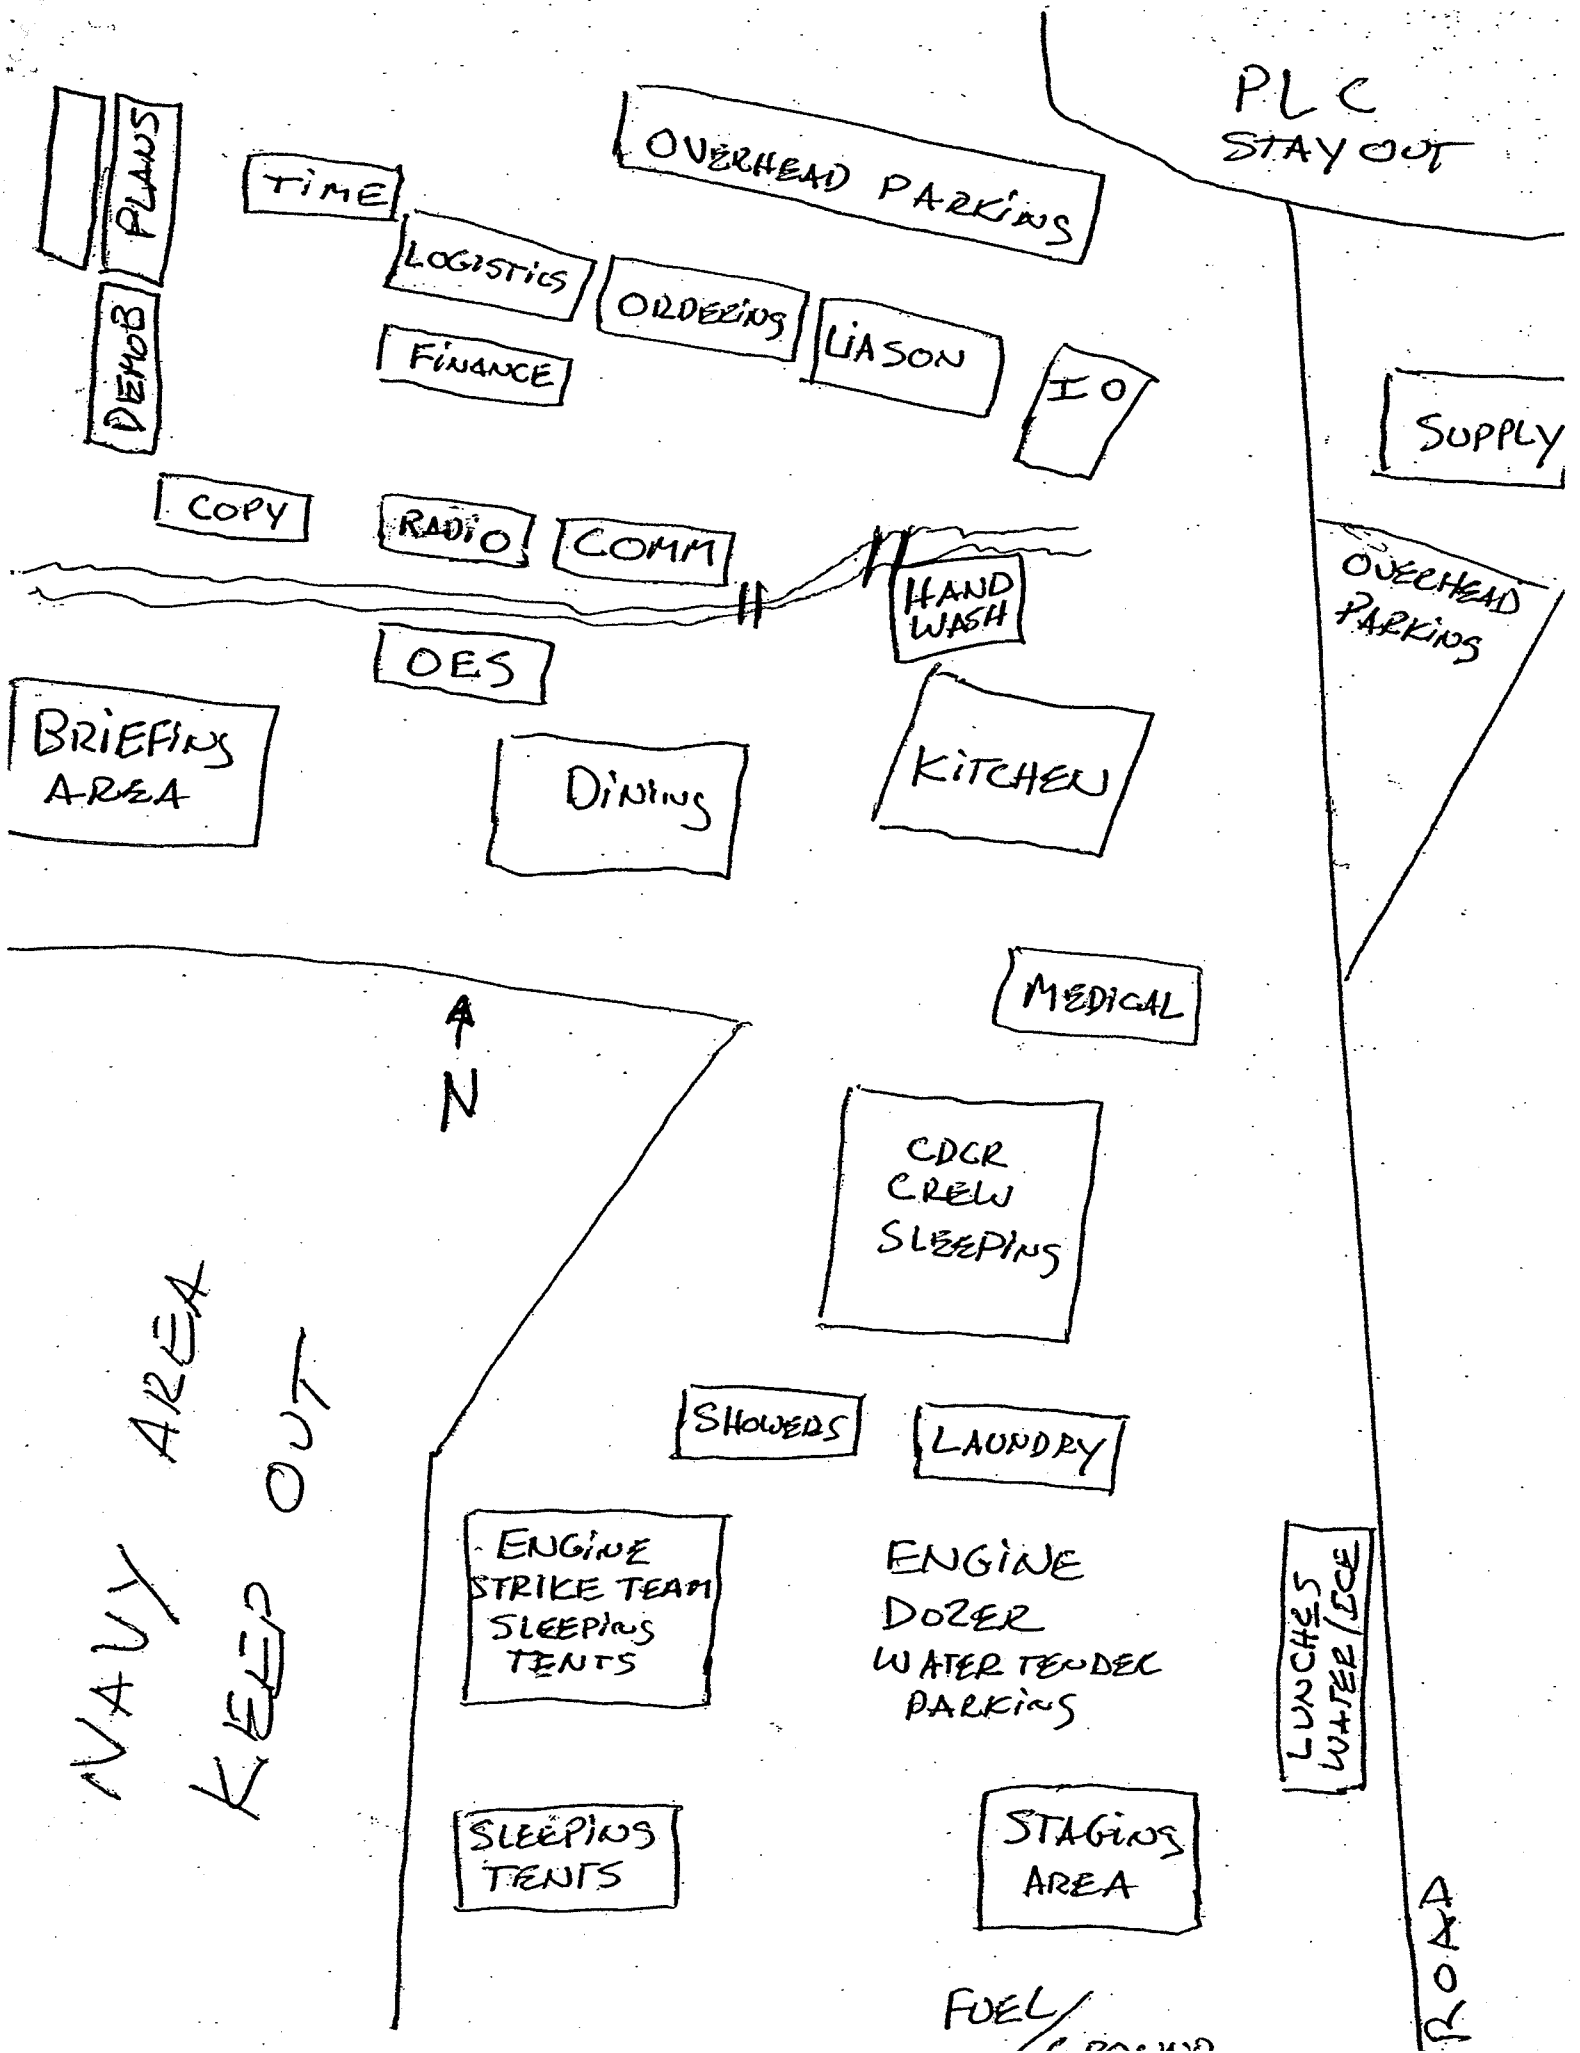 PLC
STAY OUT
PLANS
TIME
OVERHEAD PARKING
LOGISTICS
ORDERING
LIASON
IO
DEMOB
FINANCE
SUPPLY
COPY
RADIO
COMM
HAND
WASH
OVERHEAD
PARKING
OES
BRIEFING
AREA
DINING
KITCHEN
MEDICAL
N
CDCR
CREW
SLEEPING
NAVY AREA
KEEP OUT
SHOWERS
LAUNDRY
ENGINE
STRIKE TEAM
SLEEPING
TENTS
ENGINE
DOZER
WATER TENDER
PARKING
LUNCHES
WATER/ICE
SLEEPING
TENTS
STAGING
AREA
ROAD
FUEL/
GROUND